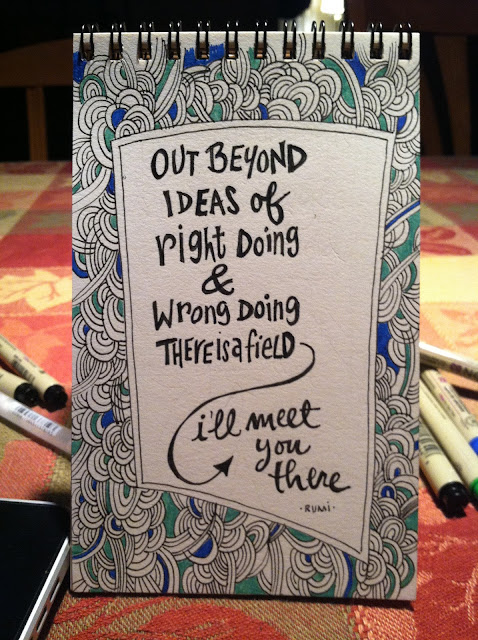 OUT BEYOND
IDEAS of
right DOING
&
WRONG DOING
THERE is a fiELD
i'll meet
you
there
- RUMI -